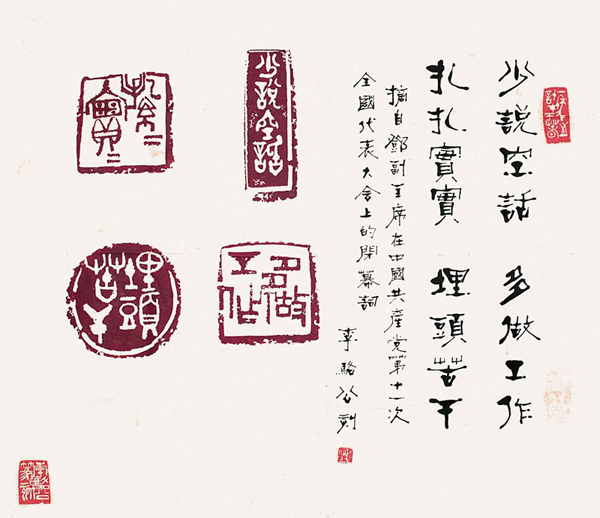 少說空話 多做工作
扎扎實實 埋頭苦干
摘自鄧副主席在中國共產党第十一次
全國代表大會上的閉幕詞
李駱公刻
少說空話
多做工作
扎〻實〻
埋頭苦干